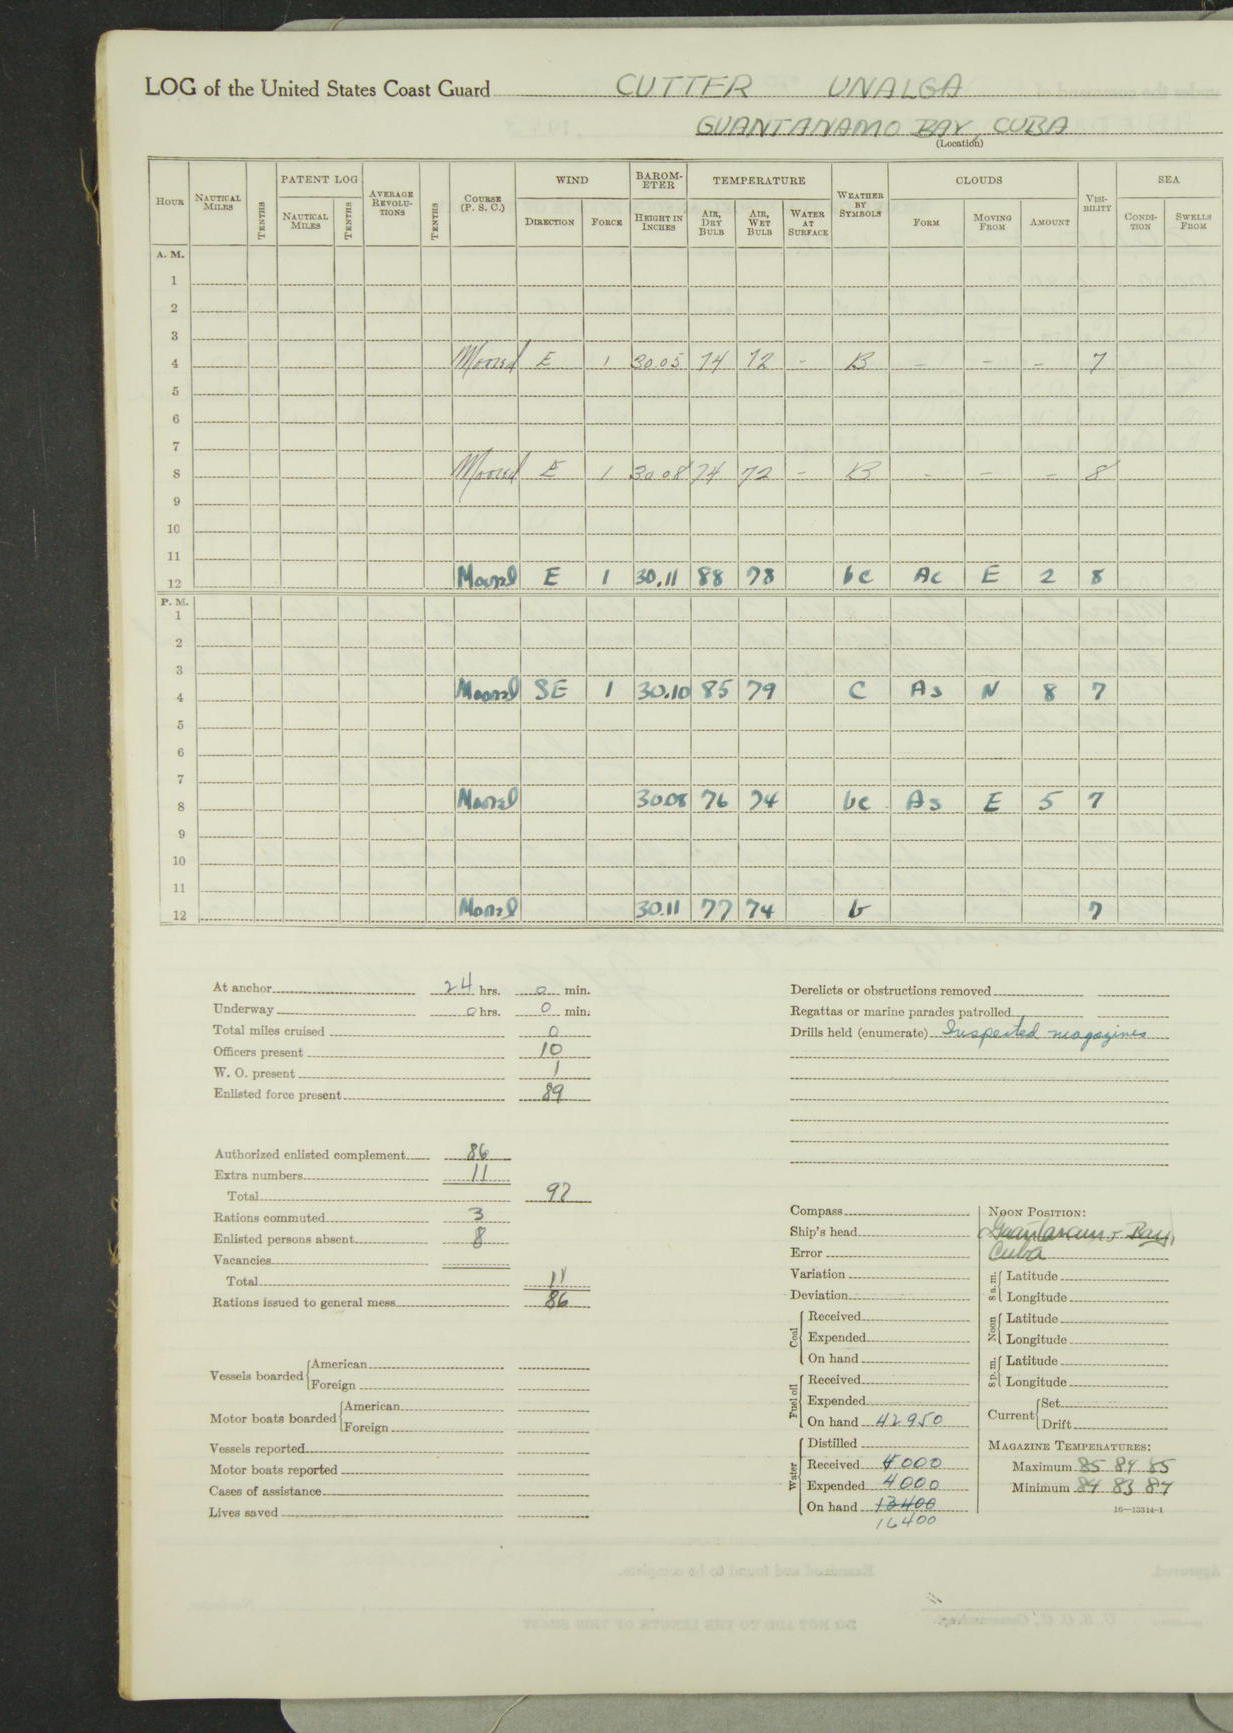 LOG of the United States Coast Guard CUTTER UNALGA
GUANTANAMO BAY, CUBA
(Location)
HOUR NAUTICAL MILES TENTHS PATENT LOG NAUTICAL MILES TENTHS AVERAGE REVOLU-TIONS TENTHS COURSE (P. S. C.) WIND DIRECTION FORCE BAROM-ETER HEIGHT IN INCHES TEMPERATURE AIR, DRY BULB AIR, WET BULB WATER AT SURFACE WEATHER BY SYMBOLS CLOUDS FORM MOVING FROM AMOUNT VISI-BILITY SEA CONDI-TION SWELLS FROM
A. M.
1
2
3
4 Moored E 1 30.05 74 72 - B - - - 7
5
6
7
8 Moored E 1 30.08 74 72 - B - - - 8
9
10
11
12 Moored E 1 30.11 88 78 bc Ac E 2 8
P. M.
1
2
3
4 Moored SE 1 30.10 85 79 C As N 8 7
5
6
7
8 Moored 30.08 76 74 bc As E 5 7
9
10
11
12 Moored 30.11 77 74 b 7
At anchor 24 hrs. 0 min.
Underway 0 hrs. 0 min.
Total miles cruised 0
Officers present 10
W. O. present 1
Enlisted force present 89
Authorized enlisted complement 86
Extra numbers 11
Total 97
Rations commuted 3
Enlisted persons absent 8
Vacancies
Total 11
Rations issued to general mess 86
Vessels boarded American
Foreign
Motor boats boarded American
Foreign
Vessels reported
Motor boats reported
Cases of assistance
Lives saved
Derelicts or obstructions removed
Regattas or marine parades patrolled
Drills held (enumerate) Inspected magazines
Compass
Ship's head
Error
Variation
Deviation
Coal Received
Expended
On hand
Fuel oil Received
Expended
On hand 42950
Water Distilled
Received 4000
Expended 4000
On hand 13400
16400
NOON POSITION:
Guantanamo Bay,
Cuba
8 a. m. Latitude
Longitude
Noon Latitude
Longitude
8 p. m. Latitude
Longitude
Current Set
Drift
MAGAZINE TEMPERATURES:
Maximum 85 84 85
Minimum 84 83 84
16—13314-1